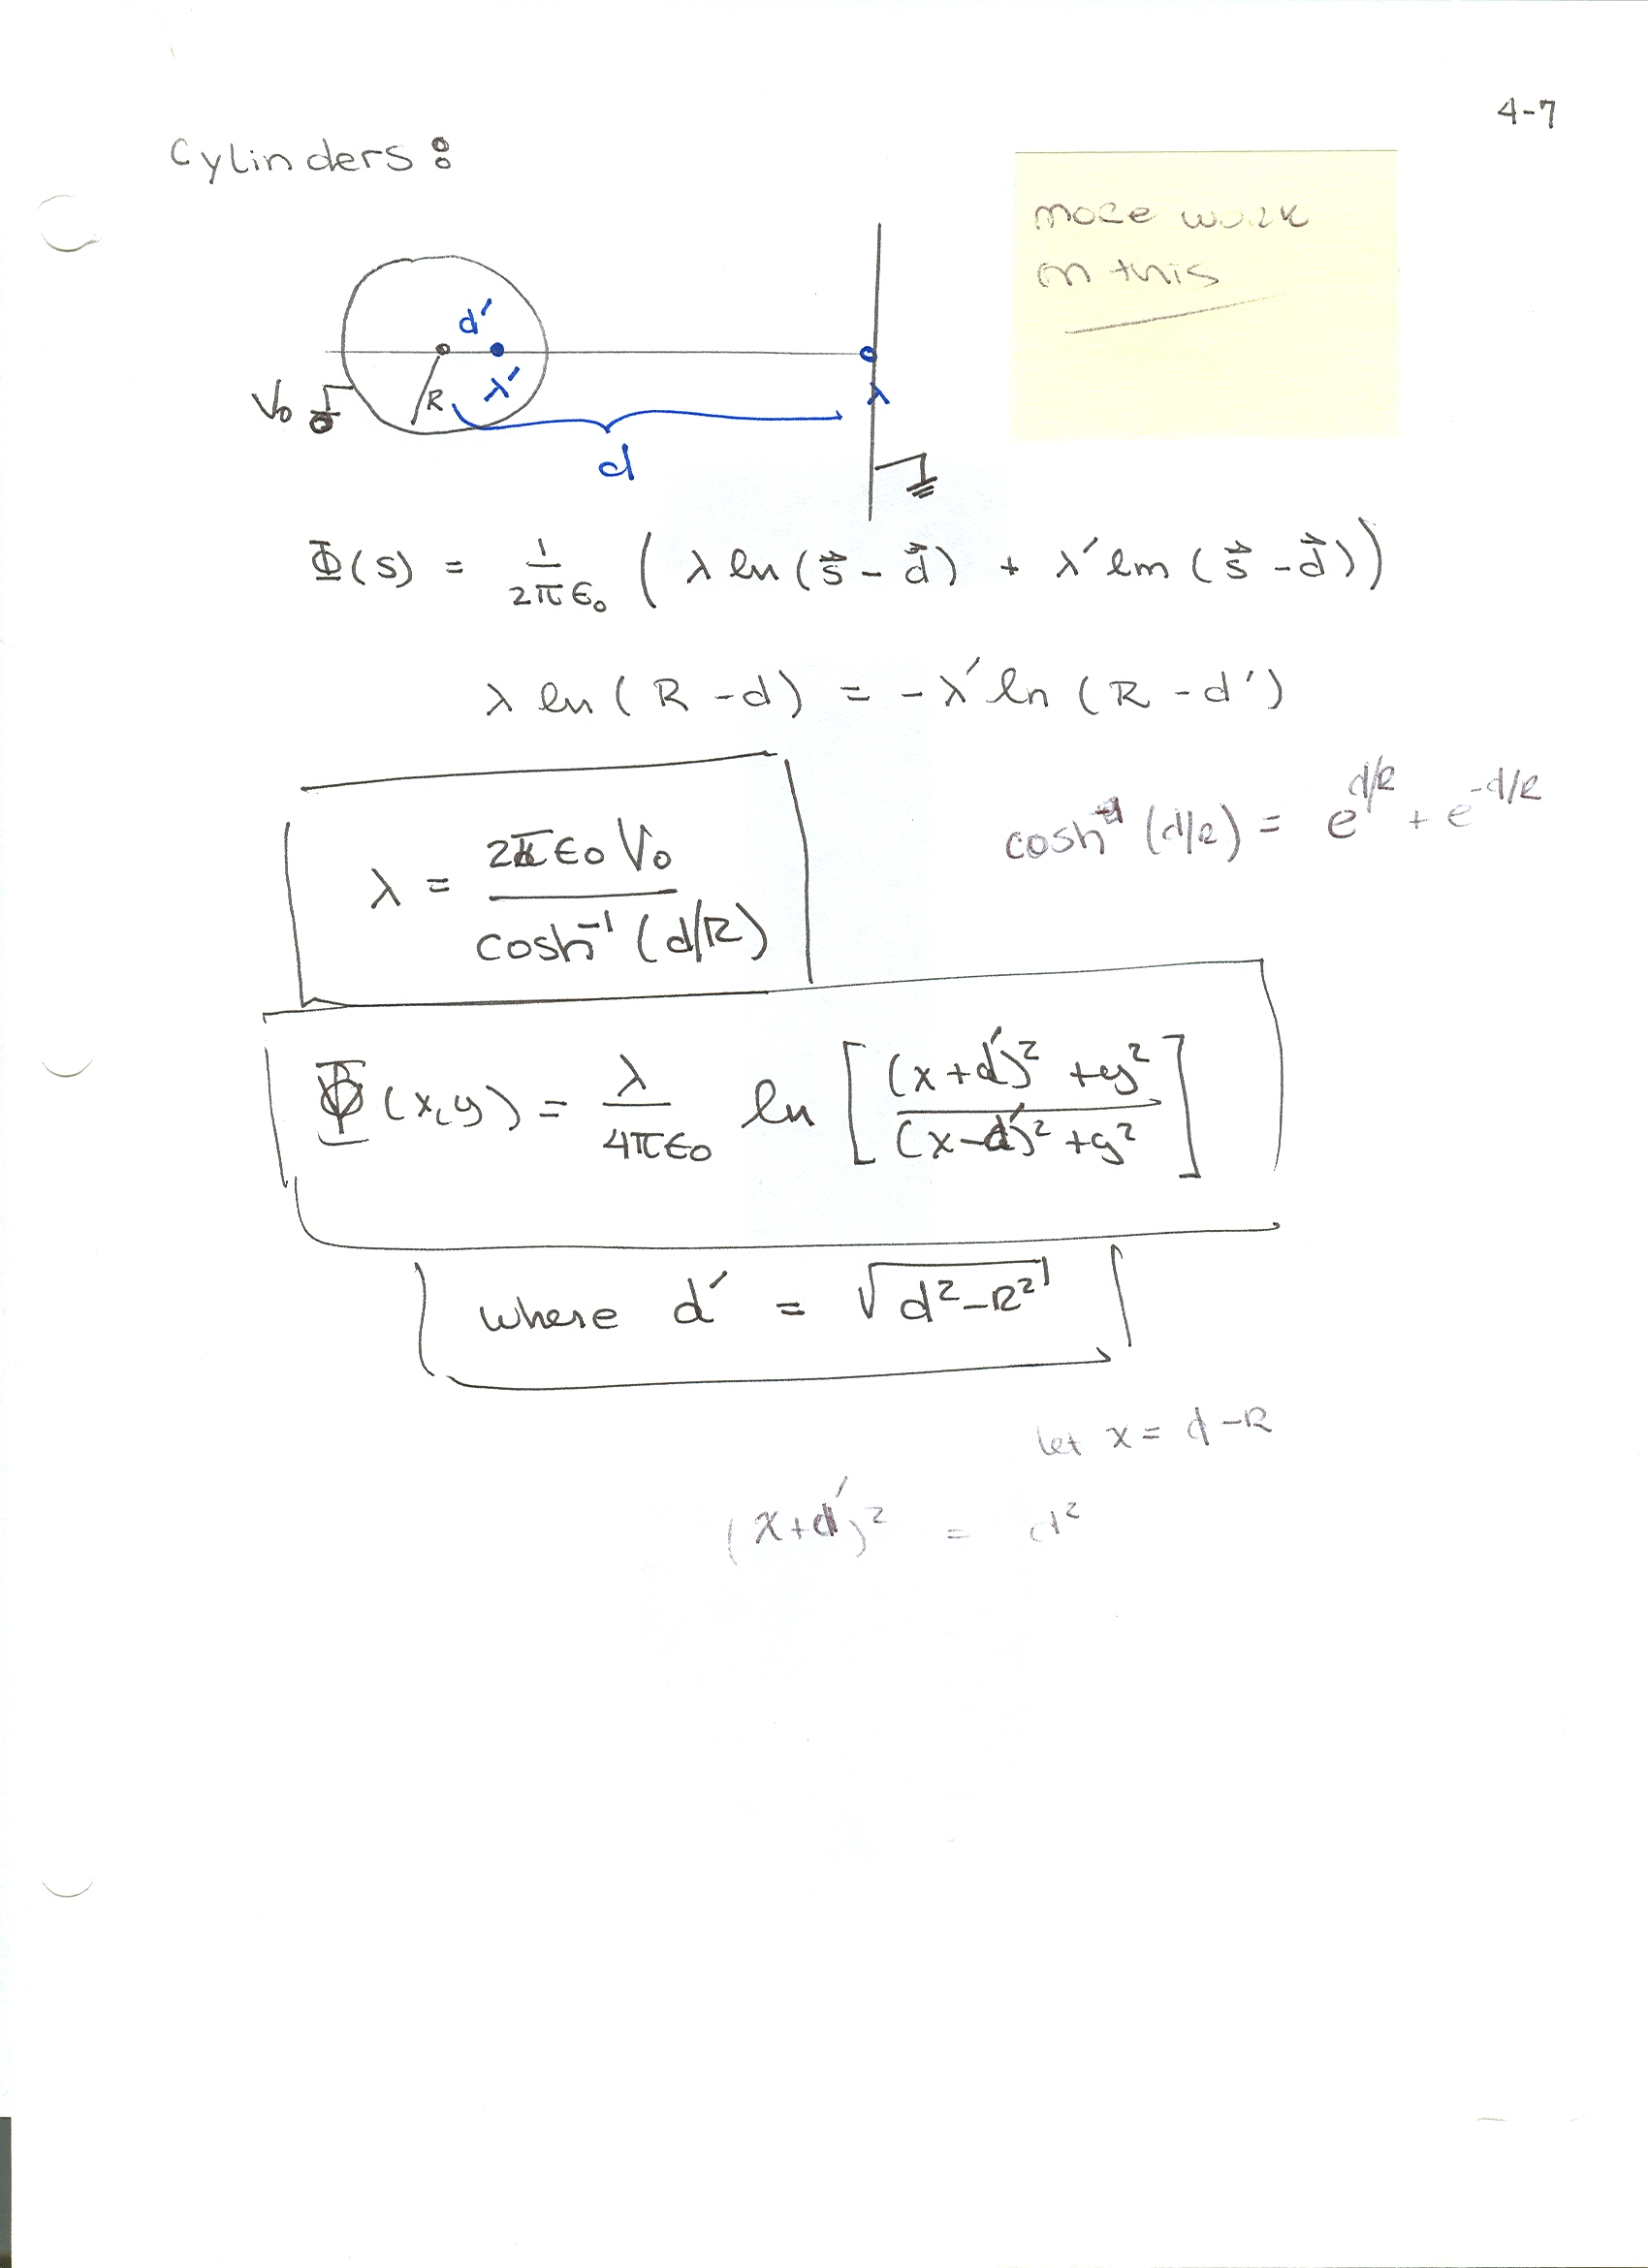 4-7
Cylinders:
more work
on this
d′
λ′
R
V₀
λ
d
Φ(s) = 1/(2πε₀) ( λ ln(s⃗ - d⃗) + λ′ ln(s⃗ - d⃗) )
λ ln(R - d) = -λ′ ln(R - d′)
λ = 2πε₀V₀ / cosh⁻¹(d/R)
cosh (d/R) = e^{d/R} + e^{-d/R}
Φ(x,y) = λ/(4πε₀) ln [ ((x+d′)² + y²) / ((x-d′)² + y²) ]
where d′ = √(d² - R²)
let x = d - R
(x+d′)² = d²